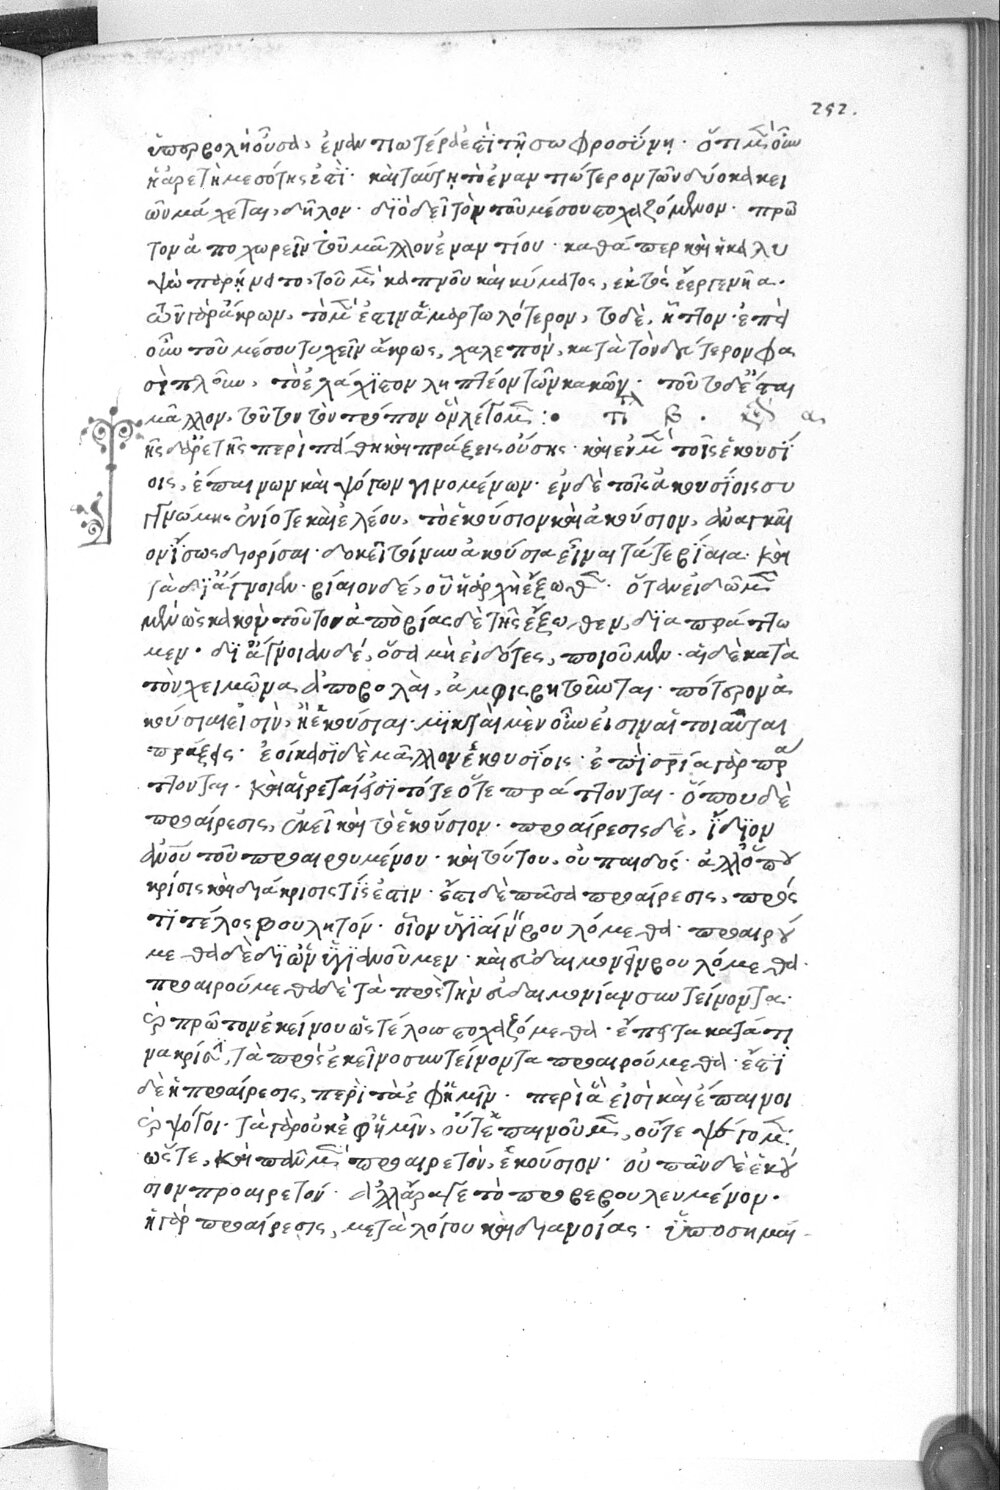 252.
ὑπερβολὴ οὖσα, ἐναντιωτέρα ἐστὶ τῇ σωφροσύνῃ· ὅτι μὲν οὖν
ἡ ἀρετὴ μεσότης ἐστὶ· καὶ ταύτῃ τὸ ἐναντιώτερον τῶν δύο κακει
ων μάχεται, δῆλον· διὸ δεῖ τὸν τοῦ μέσου στοχαζόμενον· πρῶ
τον ἀποχωρεῖν τοῦ μᾶλλον ἐναντίου· καθάπερ καὶ ἡ καλυ
ψὼ παρήνα το, τοῦ μὲν καπνοῦ καὶ κύματος, ἐκτὸς ἔεργε νῆα·
τῶν γὰρ ἄκρων, τὸ μέν ἐστιν ἁμαρτωλότερον, τὸ δὲ, ἧττον· ἐπεὶ
οὖν τοῦ μέσου τυχεῖν ἄκρως, χαλεπὸν, κατὰ τὸν δεύτερον φα
σὶ πλοῦν, τὸ ἐλάχιστον ληπτέον τῶν κακῶν· τοῦτο δ' ἔσται
μᾶλλον, τοῦτον τὸν τρόπον ὃν λέγομεν :•
τῆς ἀρετῆς περὶ πάθη καὶ πράξεις οὔσης· καὶ ἐν μὲν τοῖς ἑκουσί
οις, ἐπαίνων καὶ ψόγων γινομένων· ἐν δὲ τοῖς ἀκουσίοις συ
γγνώμης ἐνίοτε καὶ ἐλέου, τὸ ἑκούσιον καὶ ἀκούσιον, ἀναγκαῖ
ον ἴσως διορίσαι· δοκεῖ τοίνυν ἀκούσια εἶναι τά τε βίαια· καὶ
τὰ δι' ἄγνοιαν· βίαιον δέ, οὗ ἡ ἀρχὴ ἔξωθεν· ὅταν εἰδῶμεν
μὲν ὡς κακὸν τοῦτο, ἀπορίας δὲ τῆς ἔξωθεν, διαπράττω
μεν· δι' ἄγνοιαν δέ, ὅσα μὴ εἰδότες, ποιοῦμεν· αἱ δὲ κατὰ
τὸν χειμῶνας ἀποβολαὶ, ἀμφισβητοῦνται· πότερον ἀ
κούσιαι εἰσὶν, ἢ ἑκούσιαι· μικταὶ μὲν οὖν εἰσιν αἱ τοιαῦται
πράξεις· ἐοίκασι δὲ μᾶλλον ἑκουσίοις· ἐπὶ σρίᾳ γὰρ πρά
ττονται· καὶ αἱρεταί εἰσὶ τότε ὅτε πράττονται· ὅπου δὲ
προαίρεσις, ἐκεῖ καὶ τὸ ἑκούσιον· προαίρεσις δὲ, ἴδιον
αὐτοῦ τοῦ προαιρουμένου· καὶ τούτου, οὐ παιδός· ἀλλ' ὅπου
κρίσις καὶ διάκρισις τίς ἐστιν· ἔτι δὲ πᾶσα προαίρεσις, πρός
τι τέλος βουλητόν· οἷον ὑγιαίνειν βουλόμεθα· προαιρού
μεθα δὲ δι' ὧν ὑγιανοῦμεν· καὶ εὐδαιμονεῖν βουλόμεθα·
προαιρούμεθα δὲ τὰ πρὸς τὴν εὐδαιμονίαν συντείνοντα·
καὶ πρῶτον ἐκείνου ὡς τέλους στοχαζόμεθα· ἔπειτα κατά τι
να κρίσιν, τὰ πρὸς ἐκεῖνο συντείνοντα προαιρούμεθα· ἔστι
δὲ ἡ προαίρεσις, περὶ τὰ ἐφ' ἡμῖν· περὶ ἃ εἰσὶ καὶ ἔπαινοι
καὶ ψόγοι· τὰ γὰρ οὐκ ἐφ' ἡμῖν, οὔτε ἐπαινοῦμεν, οὔτε ψέγομεν·
ὥστε, καὶ πᾶν μὲν προαιρετὸν, ἑκούσιον· οὐ πᾶν δὲ ἑκού
σιον προαιρετόν· ἀλλ' ἄρα γε τὸ προβεβουλευμένον·
ἡ γὰρ προαίρεσις, μετὰ λόγου καὶ διανοίας· ὑποσημαί